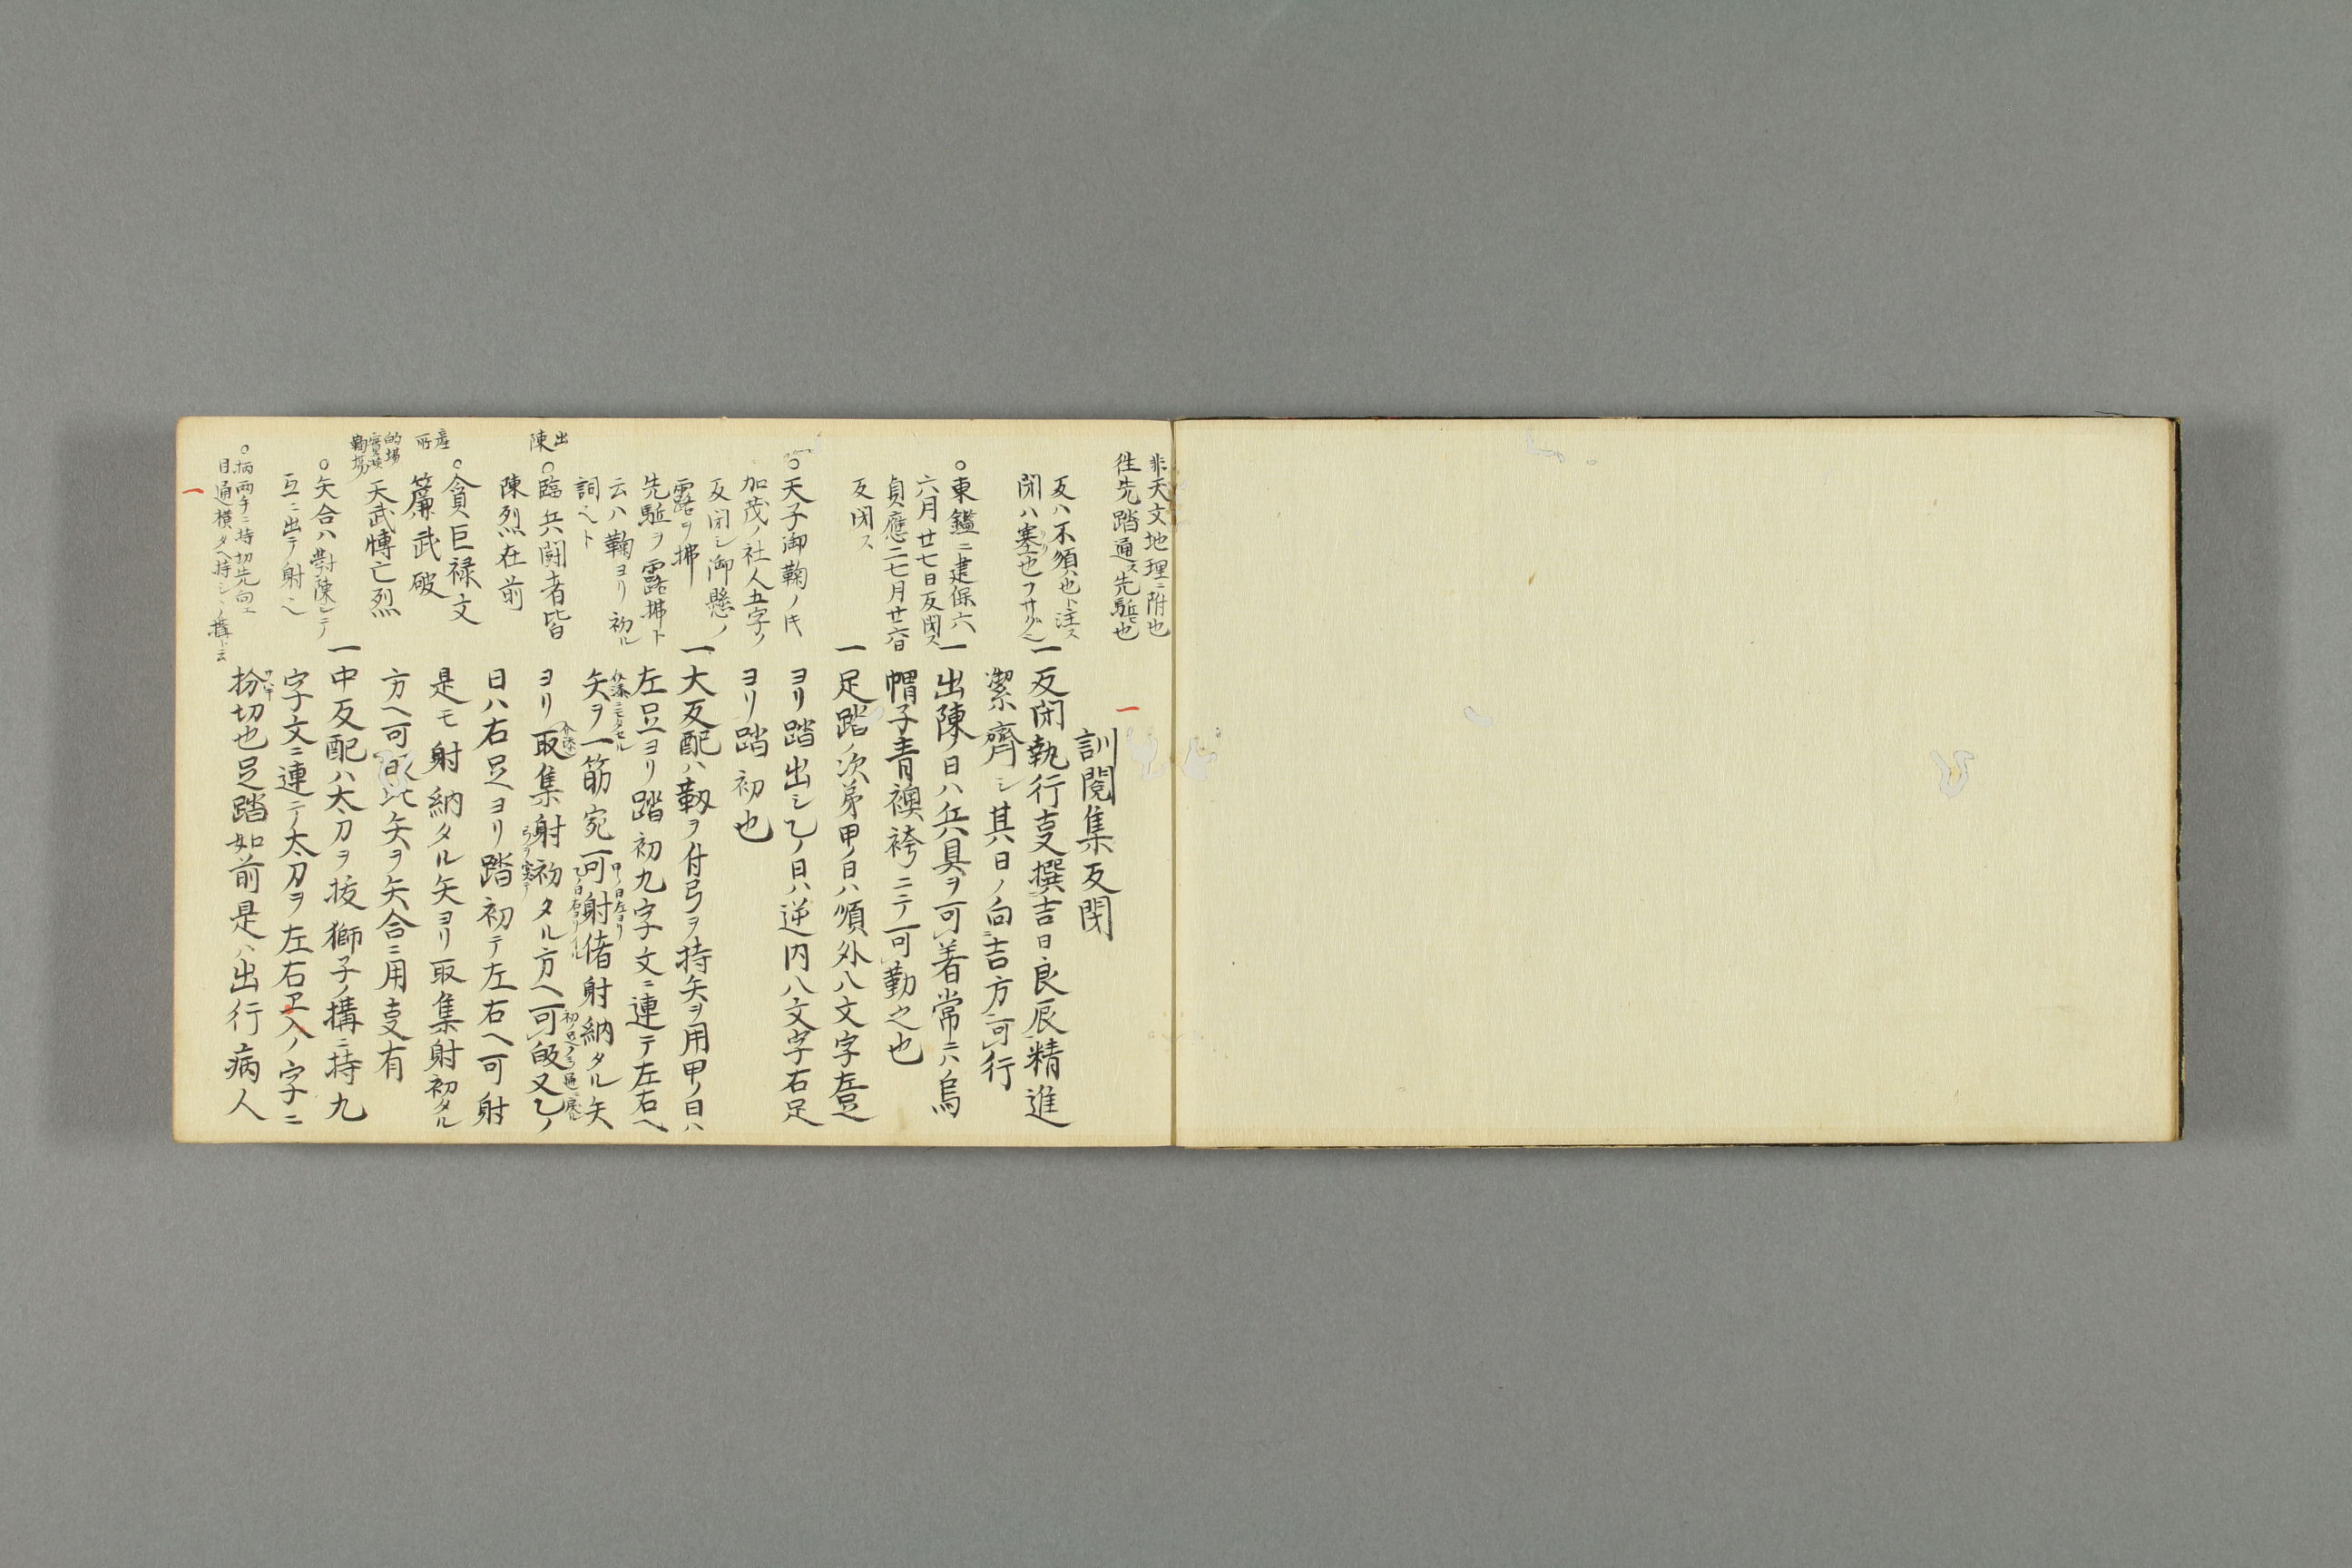 非天文地理ニ附也
往先踏通ス先駈也
反ハ不須也ト注ス
閇ハ塞也フサグ
東鑑ニ建保六
六月廿七日反閇ス
貞應二七月廿六日
反閇ス
○天子御鞠ノ時
加茂ノ社人五字ノ
反閇シ御懸ノ
露ヲ拂
先駈ヲ露拂ト
云ハ鞠ヨリ初ル
詞ヘト
出陳
○臨兵鬪者皆
陳烈在前
産所
○貪巨禄文
簾武破
的場
鞠場
天武愽亡烈
○矢合ハ對陳シテ
互ニ出テ射ヘ
○柄両手ニ持切先向エ
目通横タヘ持シヽノ構ト云
訓閲集反閇
一反閇執行支撰吉日良辰精進
潔齊シ其日ノ向吉方可行
一出陳ノ日ハ兵具ヲ可着常ニハ烏
帽子青襖袴ニテ可勤之也
一足踏ノ次第甲ノ日ハ順外八文字左足
ヨリ踏出シ乙ノ日ハ逆内八文字右足
ヨリ踏初也
一大反配ハ靱ヲ付弓ヲ持矢ヲ用甲ノ日ハ
左足ヨリ踏初九字文ニ連テ左右ヘ
矢ヲ一筋宛可射偖射納タル矢
ヨリ取集射初タル方ヘ可皈又乙ノ
日ハ右足ヨリ踏初テ左右ヘ可射
是モ射納タル矢ヨリ取集射初タル
方ヘ可皈此矢ヲ矢合ニ用支有
一中反配ハ太刀ヲ抜獅子ノ構ニ持九
字文ニ連テ太刀ヲ左右ヱ入ノ字ニ
扮切也足踏如前是ハ出行病人